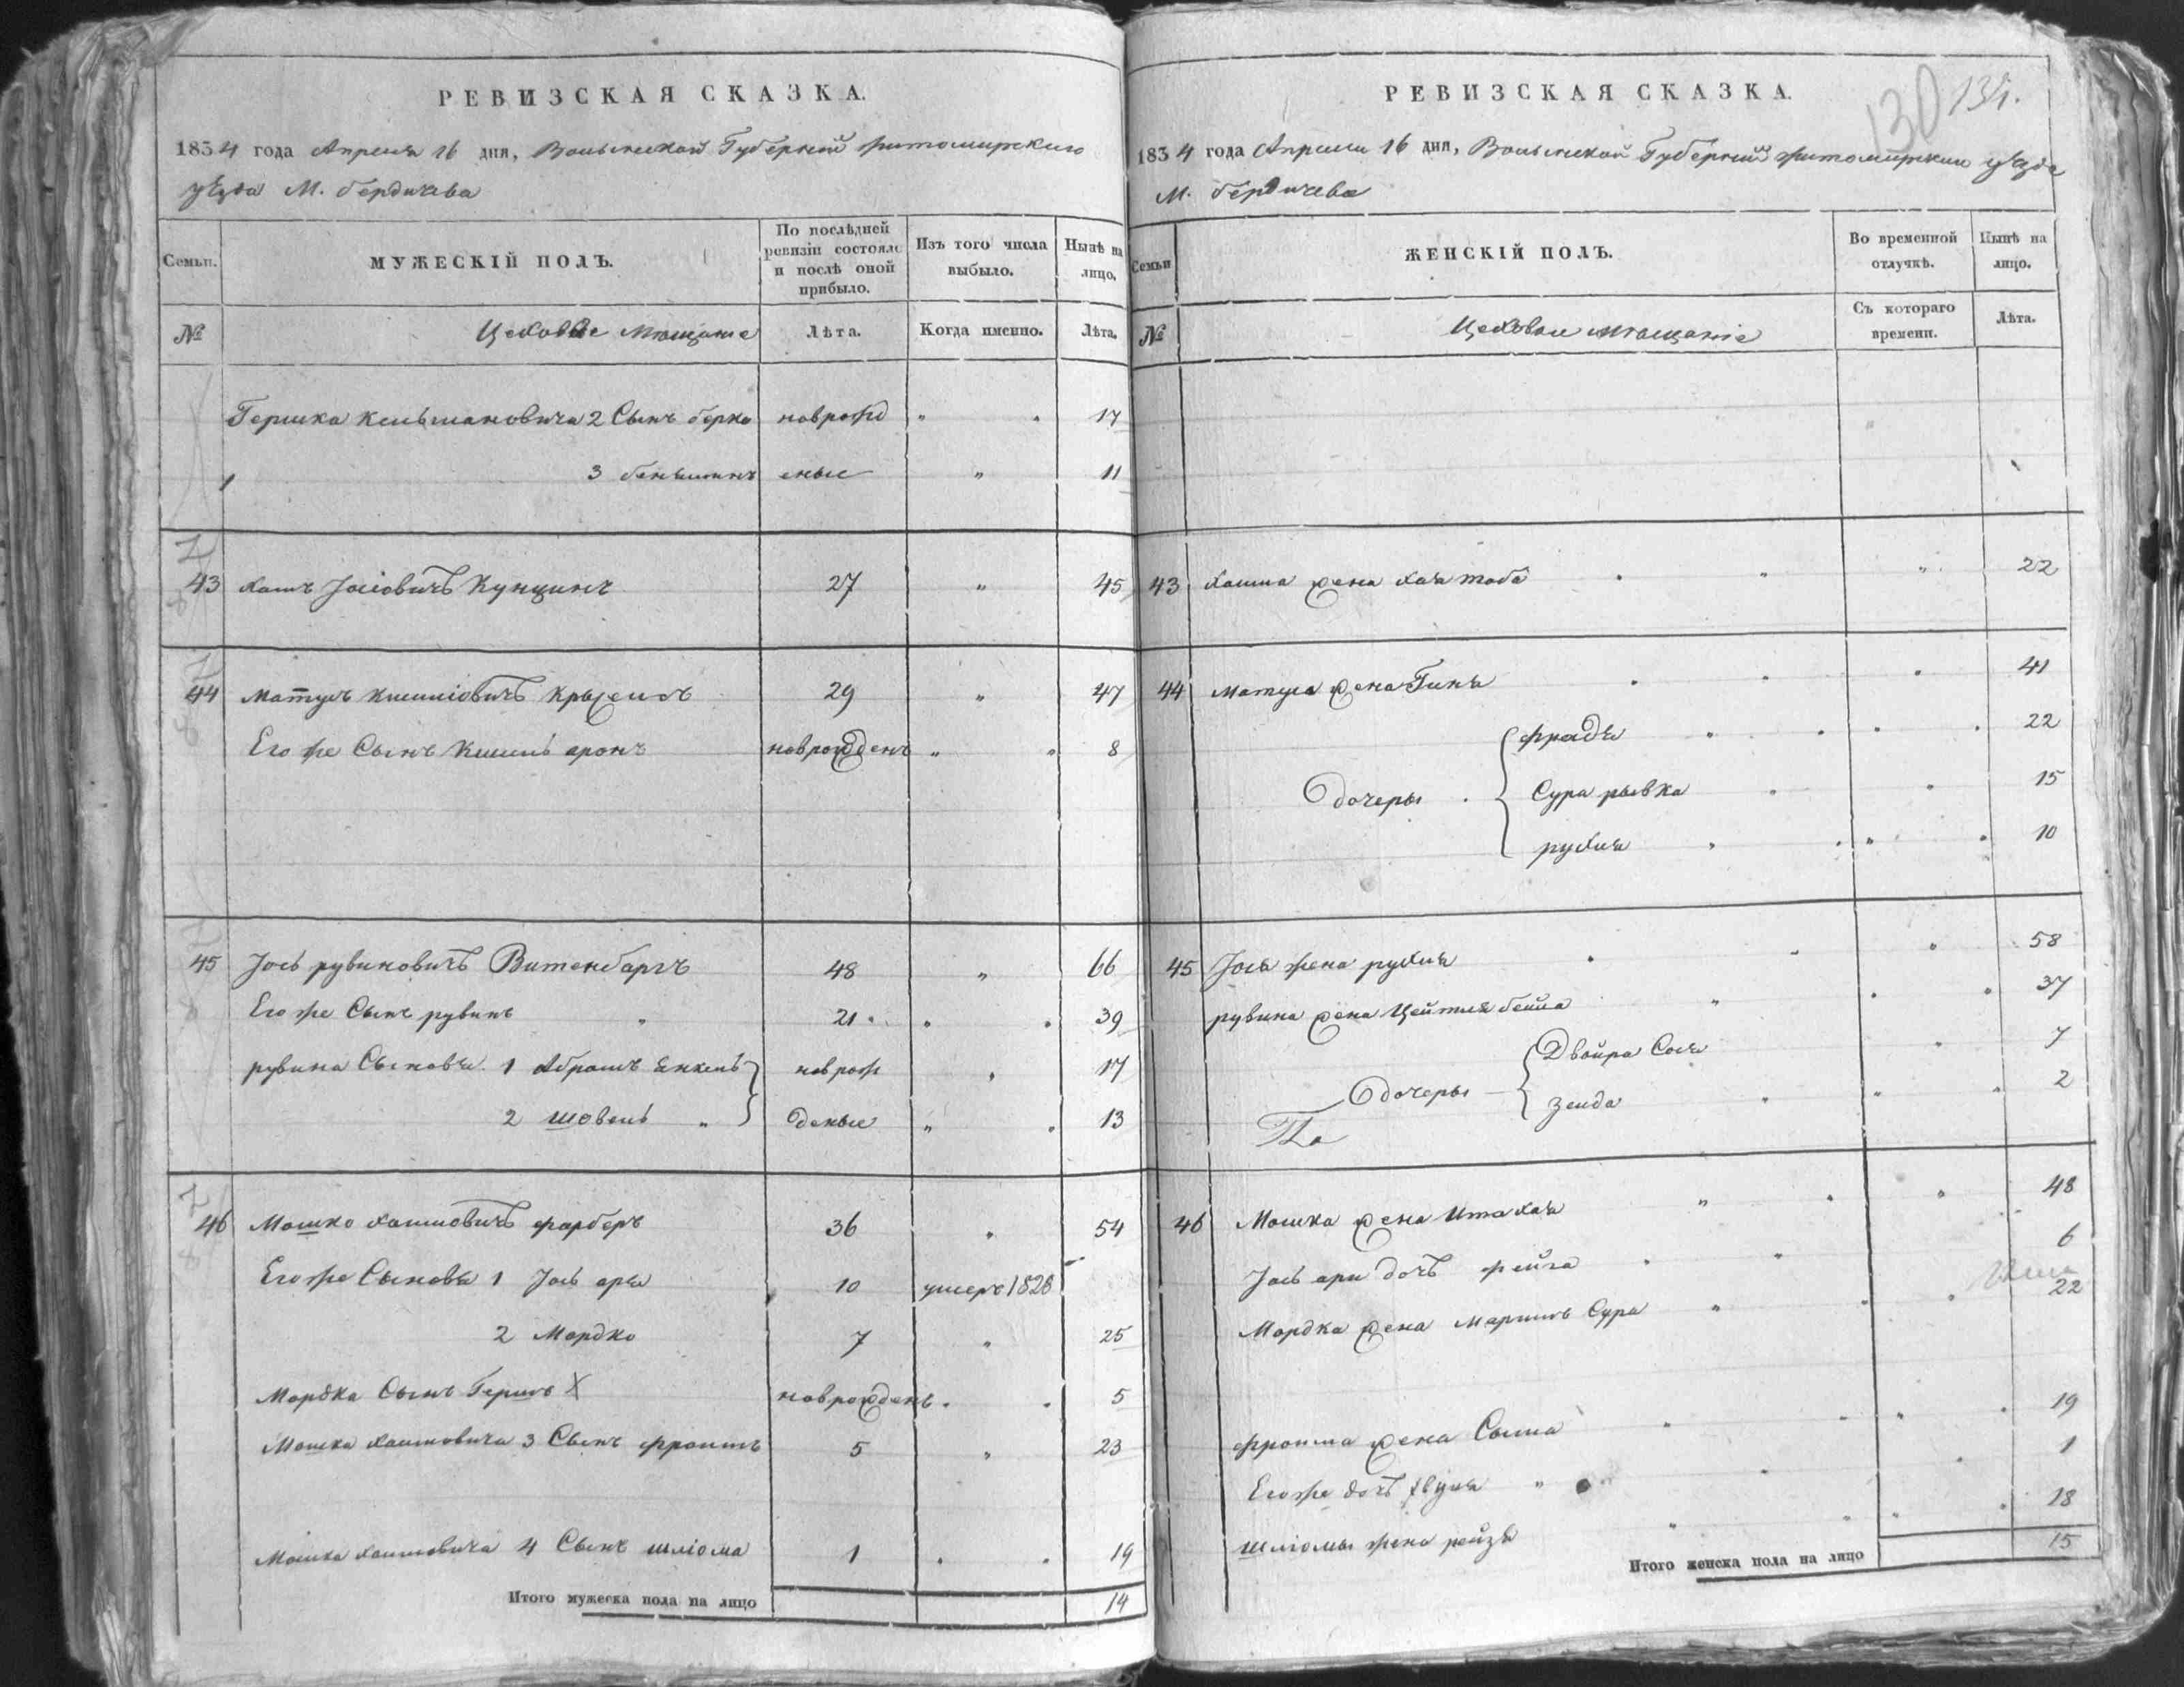 РЕВИЗСКАЯ СКАЗКА.
1834 года Апреля 16 дня, Волынской Губернии житомирского
уезда М. бердичева
Семьи.
МУЖЕСКІЙ ПОЛЪ.
По послѣдней ревизіи состояло и послѣ оной прибыло.
Изъ того числа выбыло.
Нынѣ на лицо.
№
Цеховые мещане
Лѣта.
Когда именно.
Лѣта.
Гершка Кельмановича 2 Сынъ берко новрожд " " 17
3 беньминъ еные " 11
43 хаимъ Іосіовичъ Кунцинъ 27 " 45
44 матусъ кисиліовичъ 29 " 47
Его же Сынъ Кисиль аронъ новрожденъ " " 8
45 Іось рувиновичъ Витенбаргъ 48 " 66
Его же Сынъ рувинъ " 21 " " 39
рувина Сыновья 1 Абрамъ Янкель новрож " 17
2 шовель " деные " " 13
46 Мошко хаимовичъ фарберъ 36 " 54
Его же Сыновья 1 Іось арья 10 умеръ 1828
2 Мордко 7 " 25
Мордка Сынъ Гершъ X новрожденъ " " 5
Мошка хаимовича 3 Сынъ фроимъ 5 " 23
Мошка хаимовича 4 Сынъ шліома 1 " " 19
Итого мужеска пола на лицо 14
РЕВИЗСКАЯ СКАЗКА.
130 131.
1834 года Апреля 16 дня, Волынской Губернии житомирского уезда
М. бердичева
Семьи
ЖЕНСКІЙ ПОЛЪ.
Во временной отлучкѣ.
Нынѣ на лицо.
№
Цеховые мещаніе
Съ котораго времени.
Лѣта.
43 хаима жена хая таба " " " 22
44 матуса жена Гиня " " " 41
фрадя " " " " 22
дочеры Сура рывка " " 15
рухля " " " " 10
45 Іося жена рухля " " " 58
рувина жена Цейтля бейла " " " 37
Двойра Сося " 7
дочеры
зелда " " " 2
46 Мошка жена Ита хая " " " 48
Іось ари дочь фейга " " 6
Мордка жена Маріимъ Сура " " " 22
фроима жена Сыма " " " " 19
Его же дочь " " " 1
шліомы жена рейзя " " " " 18
Итого женска пола на лицо 15